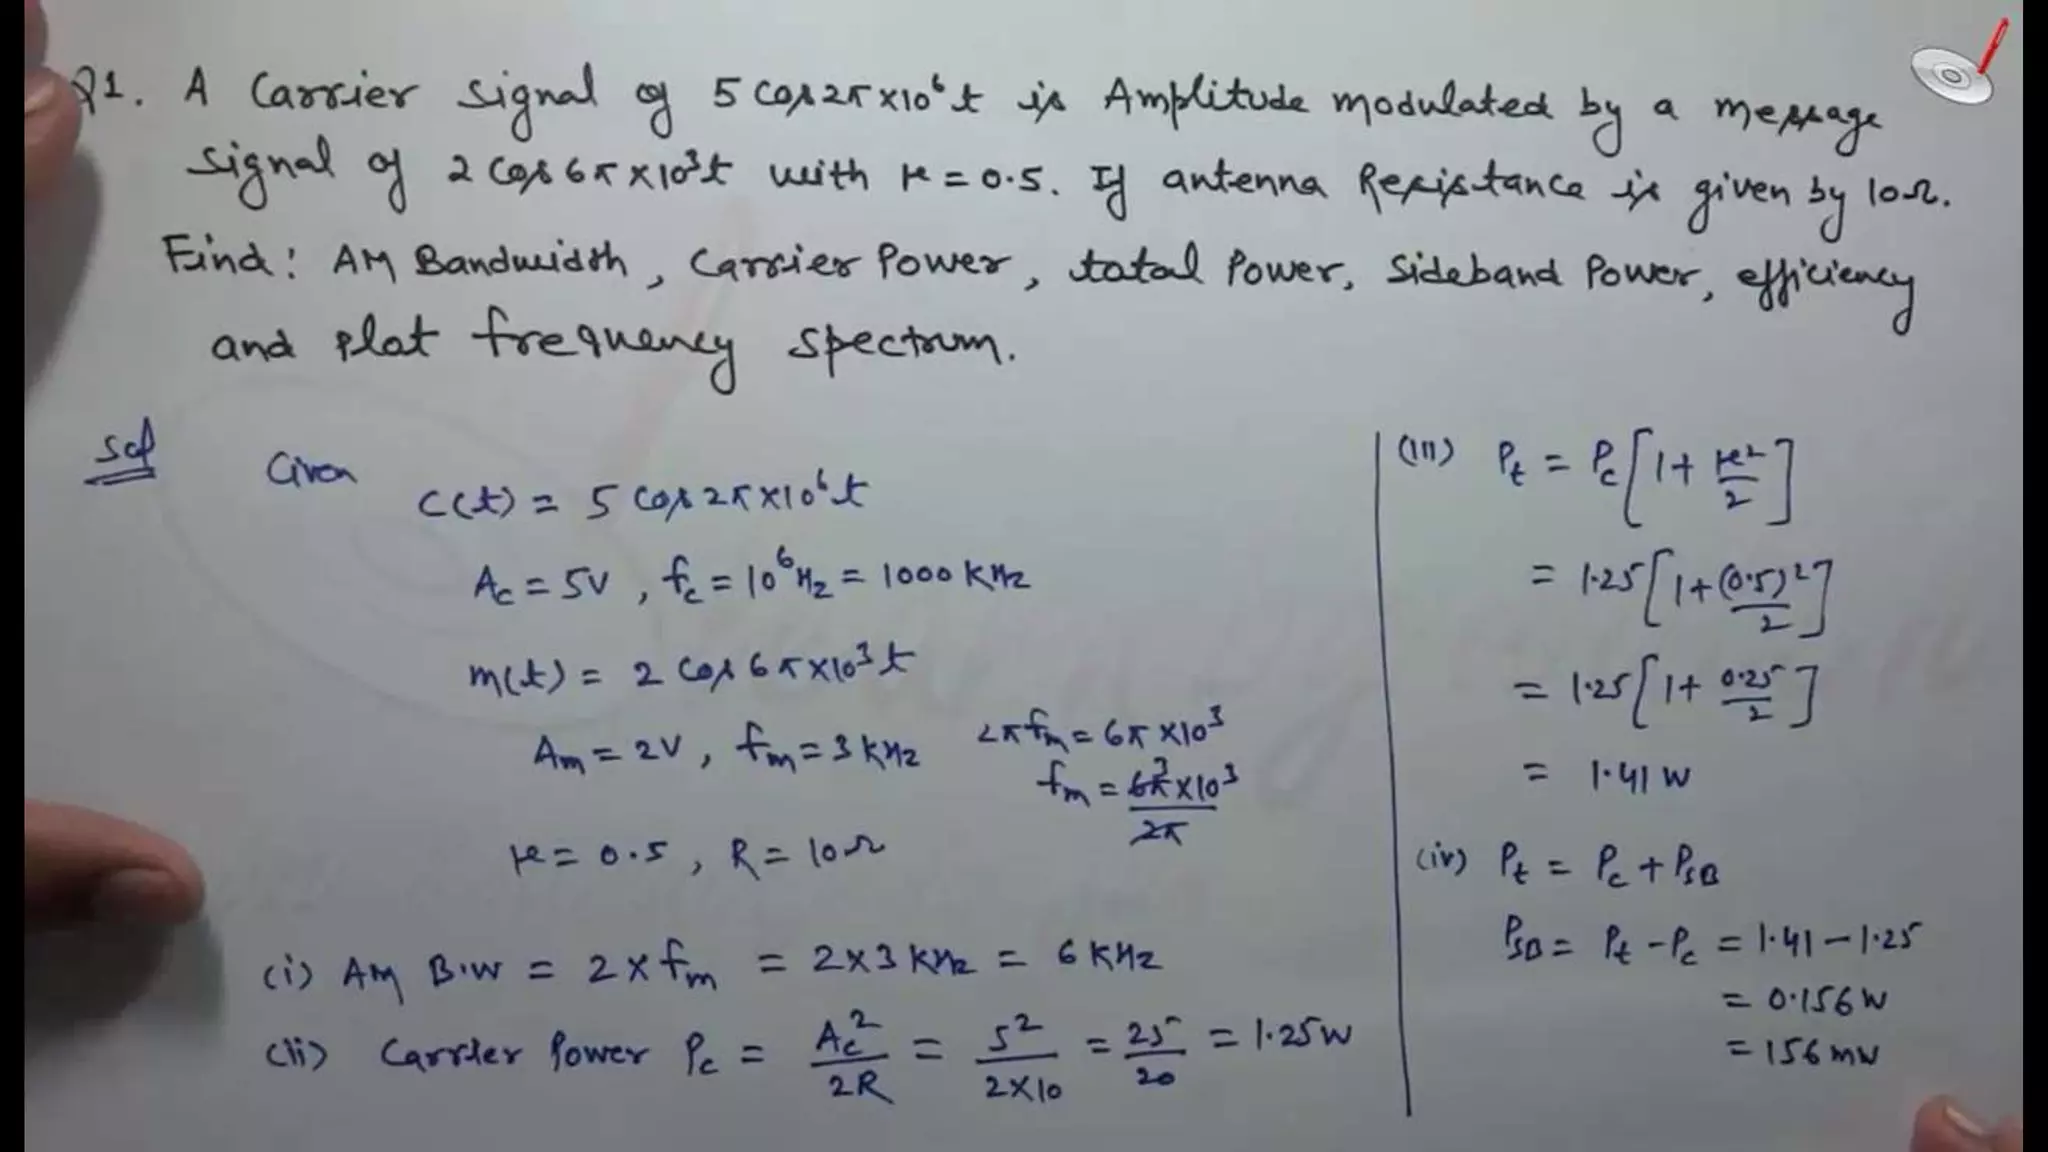 Q1. A Carrier signal of 5 cos 2π×10⁶t is Amplitude modulated by a message
signal of 2 cos 6π×10³t with μ = 0.5. If antenna Resistance is given by 10Ω.
Find: AM Bandwidth, Carrier Power, total Power, Sideband Power, efficiency
and plot frequency spectrum.
Sol Given
C(t) = 5 cos 2π×10⁶t
Ac = 5V, fc = 10⁶Hz = 1000 KHz
m(t) = 2 cos 6π×10³t
Am = 2V, fm = 3 KHz
2πfm = 6π×10³
fm = 6π×10³/2π 3
μ = 0.5, R = 10Ω
(i) AM B.W = 2×fm = 2×3 KHz = 6 KHz
(ii) Carrier Power Pc = Ac²/2R = 5²/2×10 = 25/20 = 1.25W
(iii) Pt = Pc[1 + μ²/2]
= 1.25[1 + (0.5)²/2]
= 1.25[1 + 0.25/2]
= 1.41 W
(iv) Pt = Pc + PSB
PSB = Pt - Pc = 1.41 - 1.25
= 0.156W
= 156 mW